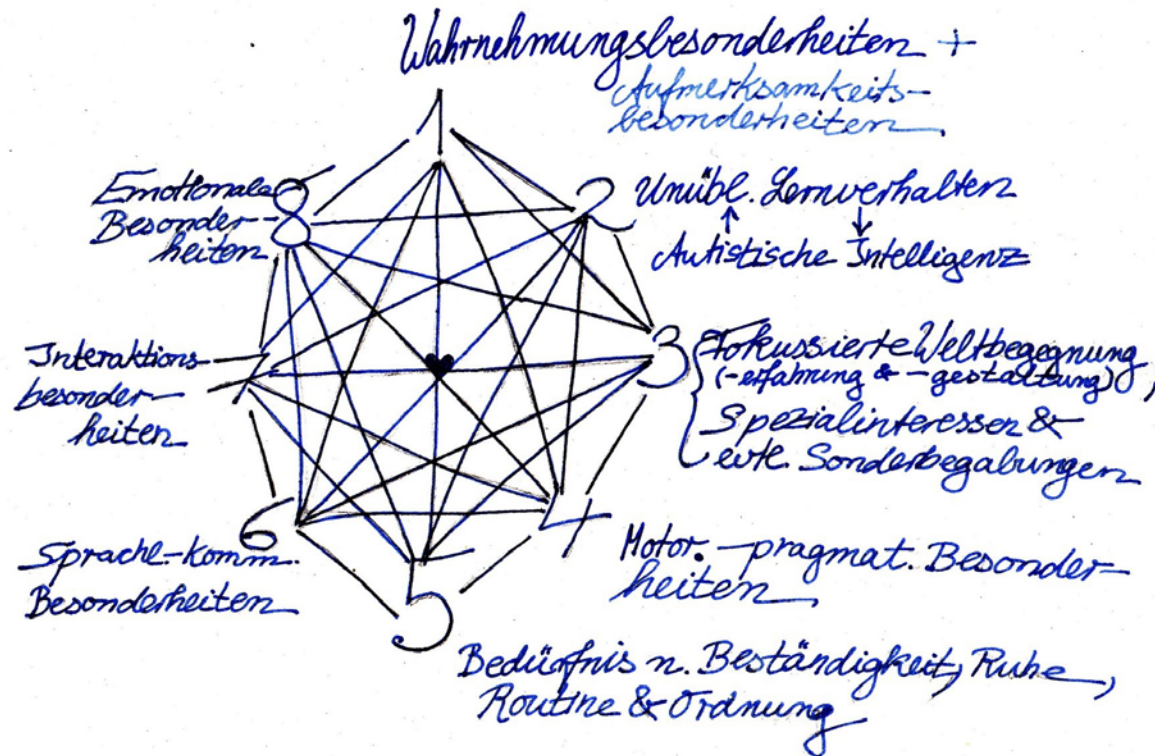 1
Wahrnehmungsbesonderheiten +
Aufmerksamkeits-
besonderheiten
2
Unübl. Lernverhalten
Autistische Intelligenz
3
Fokussierte Weltbegegnung
(-erfahrung & -gestaltung),
Spezialinteressen &
evtl. Sonderbegabungen
4
Motor.-pragmat. Besonder-
heiten
5
Bedürfnis n. Beständigkeit, Ruhe,
Routine & Ordnung
6
Sprachl.-komm.
Besonderheiten
7
Interaktions-
besonder-
heiten
8
Emotionale
Besonder-
heiten